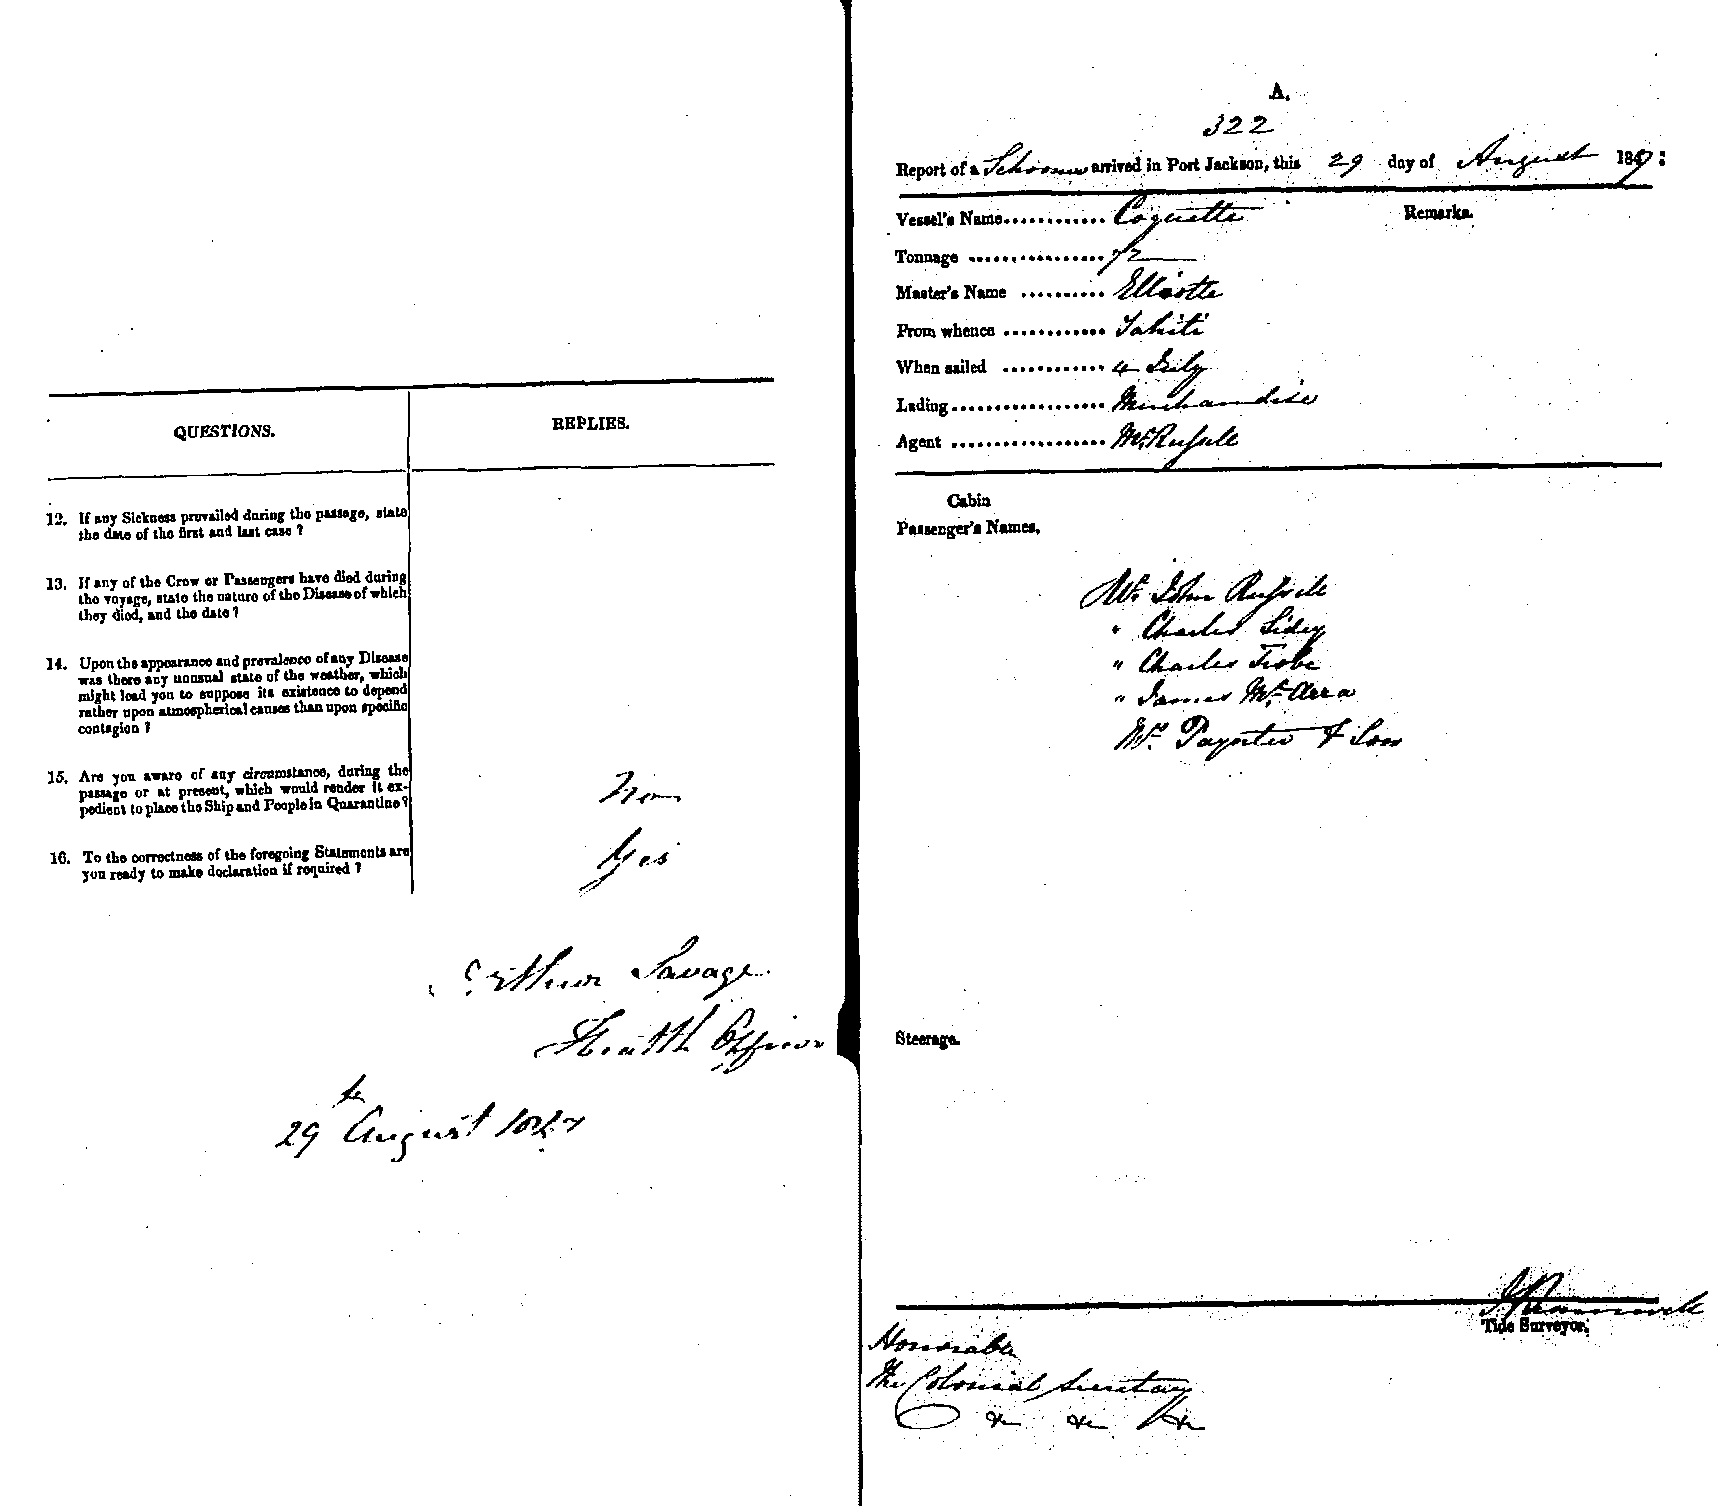 QUESTIONS.
REPLIES.
12. If any Sickness prevailed during the passage, state
the date of the first and last case ?
13. If any of the Crew or Passengers have died during
the voyage, state the nature of the Disease of which
they died, and the date ?
14. Upon the appearance and prevalence of any Disease
was there any unusual state of the weather, which
might lead you to suppose its existence to depend
rather upon atmospherical causes than upon specific
contagion ?
15. Are you aware of any circumstance, during the
passage or at present, which would render it ex-
pedient to place the Ship and People in Quarantine ?
16. To the correctness of the foregoing Statements are
you ready to make declaration if required ?
Yes
Arthur Savage
Health Officer
29th August 1847
A.
322
Report of a Schooner arrived in Port Jackson, this 29 day of August 1847:
Vessel's Name............ Coquette
Remarks.
Tonnage ................ 72
Master's Name .......... Elliotte
From whence ............ Tahiti
When sailed ............ 4 July
Lading.................. Merchandise
Agent .................. Mr. Russell
Cabin
Passenger's Names.
Mr. John Russell
" Charles Sidey
" Charles
" James
Mr. Paynter & Son
Steerage.
Tide Surveyor.
Honorable
The Colonial Secretary
&c &c &c